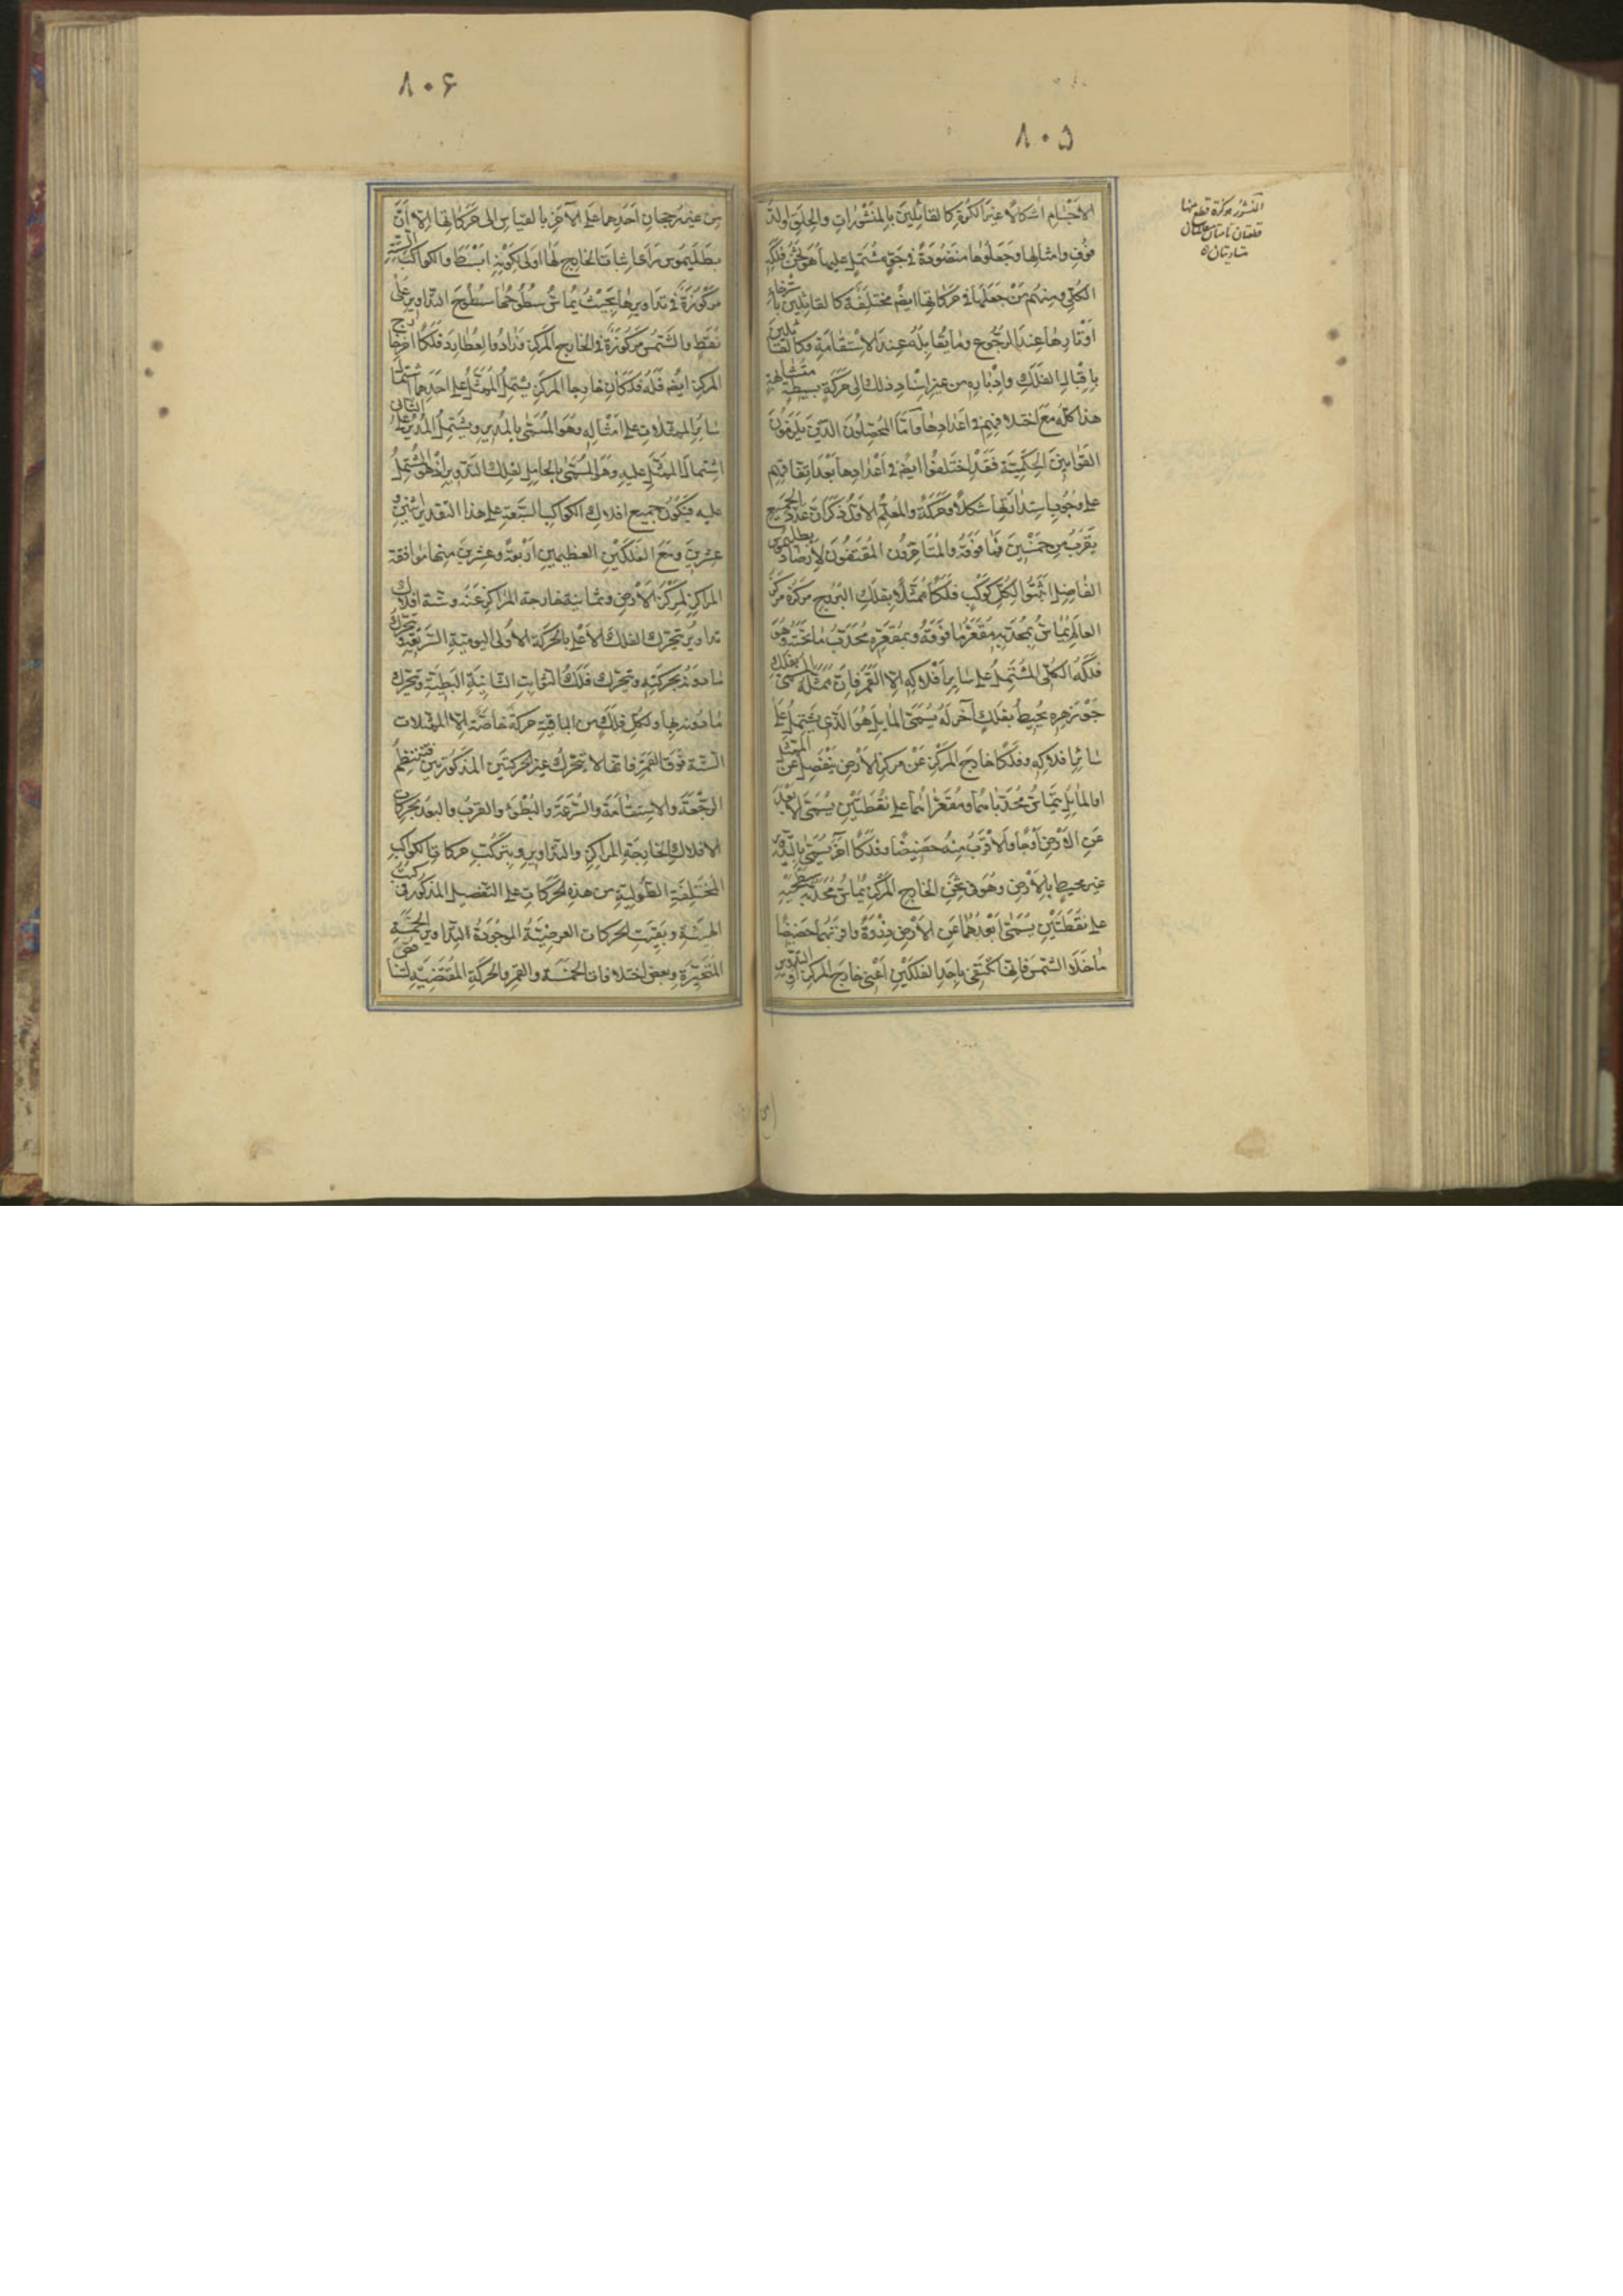 ٨٠٥
الأجسام أشكالا غير الكرة كالقائلين بالمنشورات والحلق والد
فوف وامثالها وجعلوها منضودة في جو مشتمل عليها هو ثخن فلكه
الكلي ومنهم من جعلها في حركاتها ايضم مختلفة كالقائلين باسترخاء
اوتارها عند الرجوع وما يقابله عند الاستقامة وكالقائلين
باقبال الفلك وادباره من غير اسناد ذلك الى حركة بسيطة متشابهة
هذا كله مع اختلافهم في اعدادها واما المحصلون الذين يلزمون
القوانين الحكمية فقد اختلفوا ايضم في اعدادها بعد اتفاقهم
على وجوب استدارتها شكلا وحركة والمعلم الاول ذكر ان عدد الجميع
يقرب من خمسين فما فوقه والمتاخرون المقتفون لارصاد بطليموس
الفاضل اثبتوا لكل كوكب فلكا ممثلا بفلك البروج مركزه مركز
العالم يماس بمحدبه مقعر ما فوقه وبمقعره محدب ما تحته وهو
فلكه الكلي المشتمل على ساير أفلاكه الا القمر فان ممثله المسمى بفلك
جوزهره يحيط بفلك آخر له يسمى المايل هو الذي يشتمل على
ساير افلاكه وفلكا خارج المركز عن مركز الارض ينفصل عن الممثل
او المايل يتماس محدباهما ومقعراهما على نقطتين يسمى الابعد
عن الارض أوجا والاقرب منه حضيضا وفلكا آخر يسمى بالتدوير
غير محيط بالأرض وهو في ثخن الخارج المركز يماس محدبه سطحيه
على نقطتين يسمى ابعدهما عن الارض ذروة واقربهما حضيضا
ما خلا الشمس فانها تكتفي باحد الفلكين اعني خارج المركز او التدوير
المنشور كرة قطع منها
قطعتان
متساويتان
٨٠۶
من غير رجحان احدهما على الآخر بالقياس الى حركاتها الا أن
بطليموس رأى اثبات الخارج لها اولى لكونه ابسط والكواكب الستة
مركوزة في تداويرها بحيث يماس سطوحها سطوح التداوير على
نقط والشمس مركوزة في الخارج المركز وزادوا لعطارد فلكا آخر خارج
المركز ايضم فله فلكان خارجا المركز يشتمل الممثل على احدهما اشتمال
ساير الممثلات على امثاله وهو المسمى بالمدير ويشتمل المدير على الثاني
اشتمال الممثل عليه وهو المسمى بالحامل لفلك التدوير اذ هو المشتمل
عليه فيكون جميع افلاك الكواكب السبعة على هذا التقدير اثنين و
عشرين ومع الفلكين العظيمين اربعة وعشرين منها موافقة
المراكز لمركز الأرض وثمانية خارجة المراكز عنه وستة افلاك
تداوير يتحرك الفلك الاعلى بالحركة الاولى اليومية السريعة فيتحرك
ما دونه بحركته ويتحرك فلك الثوابت الثانية البطيئة ويتحرك
ما دونه بها ولكل فلك من الباقية حركة خاصة الا الممثلات
الستة فوق القمر فانها لا يتحرك غير الحركتين المذكورتين فتنتظم
الرجعة والاستقامة والسرعة والبطؤ والقرب والبعد بحركات
الافلاك الخارجة المراكز والتداوير ويتركب حركات الكواكب
المختلفة الطولية من هذه الحركات على التفصيل المذكور في كتب
الهيئة وبقيت الحركات العرضية الموجودة لتداوير الخمسة
المتحيرة وبعض اختلافات الخمسة والقمر بالحركة المقتضية لتشابه